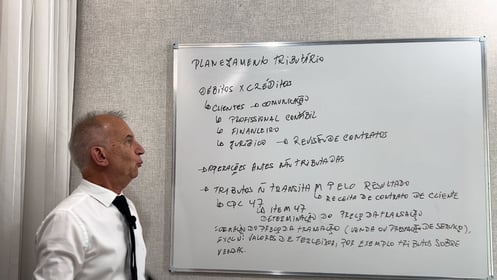 PLANEJAMENTO TRIBUTÁRIO
DÉBITOS X CRÉDITOS
↳ CLIENTES → COMUNICAÇÃO
↳ PROFISSIONAL CONTÁBIL
↳ FINANCEIRO
↳ JURÍDICO → REVISÃO DE CONTRATOS
→ OPERAÇÕES ANTES NÃO TRIBUTADAS
→ TRIBUTOS Ñ TRANSITAM PELO RESULTADO
↳ CPC 47 ↳ RECEITA DE CONTRATO DE CLIENTE
↳ ITEM 47
DETERMINAÇÃO DO PREÇO DA TRANSAÇÃO
DO PREÇO DA TRANSAÇÃO (VENDA OU PRESTAÇÃO DE SERVIÇO),
EXCLUI VALORES DE TERCEIROS, POR EXEMPLO TRIBUTOS SOBRE
VENDAS.